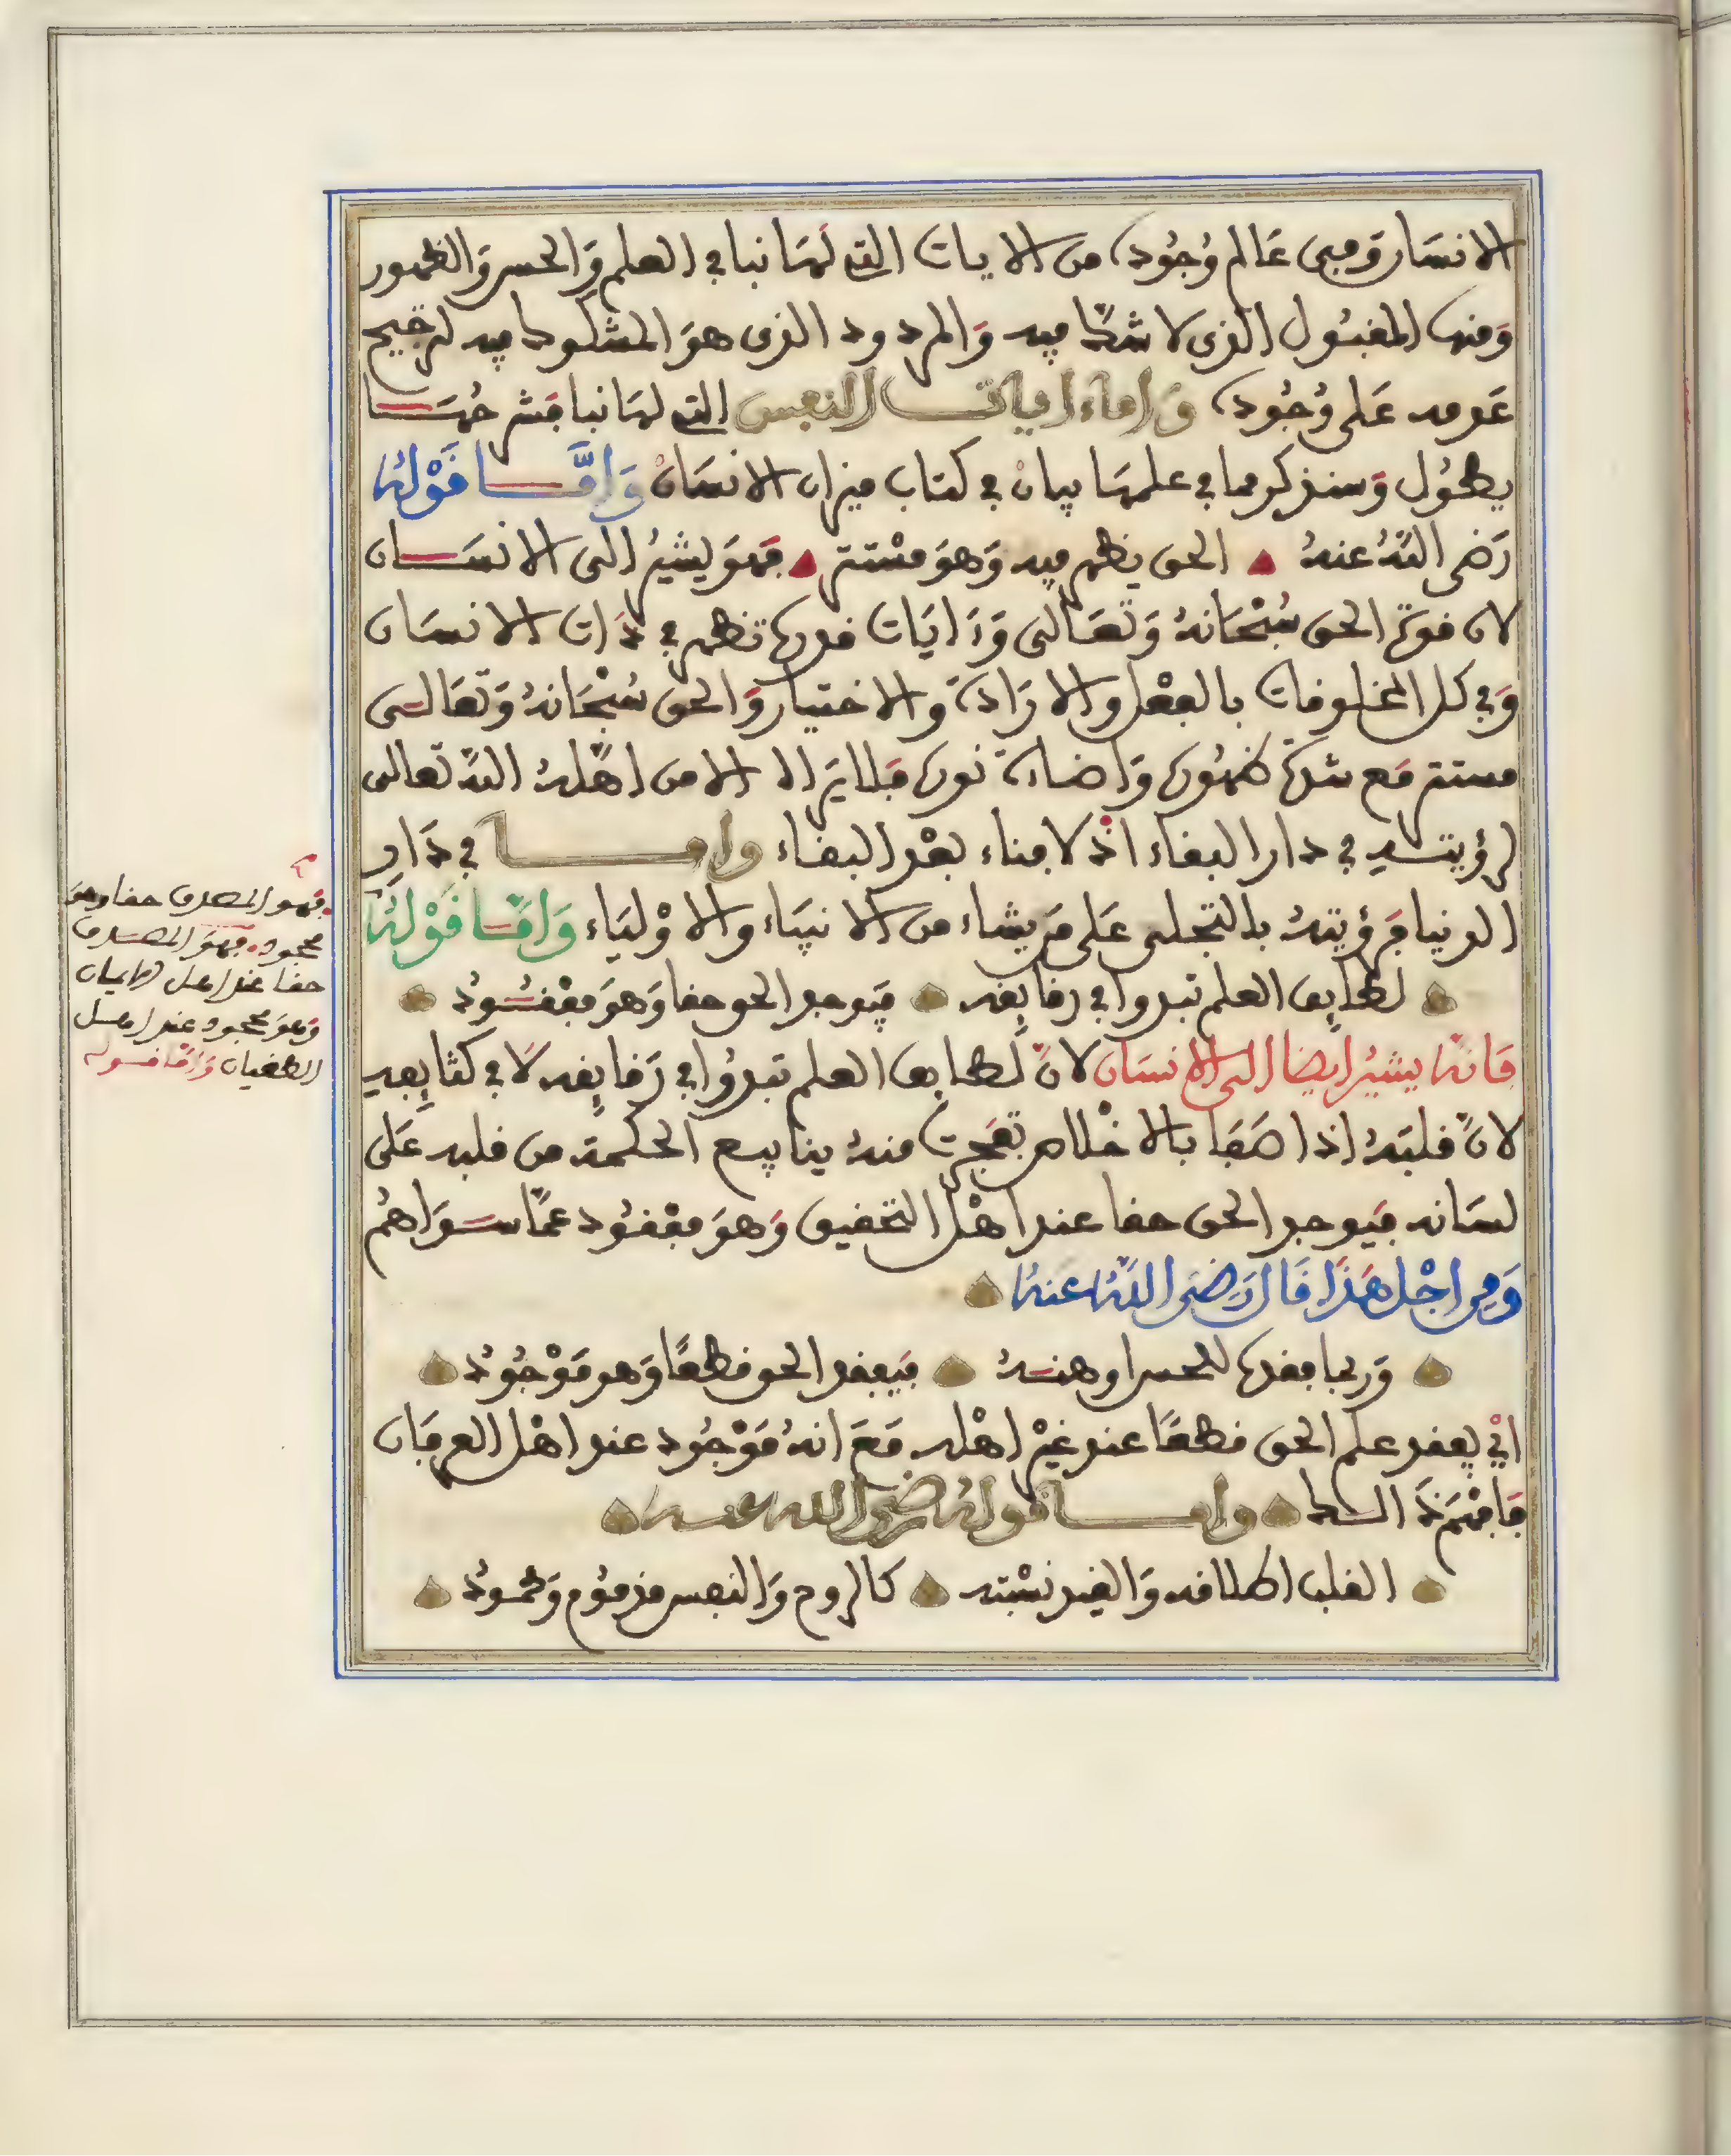 الانسان ومبنى عالم وجوده من الايات التي لها نبا في العلم والحس والظهور
ومنها المقبول الذي لا شك فيه والمردود الذي هو المشكوك فيه لترجيح
عدمه على وجوده وَاما ءايات النفس التي لها نبا فشرحُهَا
يطُول وسنذكر مما في علمها بيان في كتاب ميزان الانسان وَامَّا قَوْلُهُ
رَضي اللهُ عنهُ الحق يظهر فيه وَهوَ مسْتتر فهوَ يشيرُ الى الانسَان
لان قوة الحق سُبْحَانهُ وَتعَالى وَءايَات قدرته تظهر في ذَات الانسَان
وَفي كل المخلوقات بالفعْل والارَادة والاختيار وَالحق سُبْحَانهُ وَتعَالى
مستتر مَع شدة ظهُوره وَاضاءة نوره فلا يَراه الا من اهَّلهُ اللهُ تعالى
لرؤيته في دار البقاء اذْ لا فناء بعْد البقاء واما في دَار
الدنيا فرؤيتهُ بالتجلى عَلى مَن يشاء من الانبيَاء والاوْليَاء وَامَّا قَوْلهُ
لطايف العلم تبدوا في رقايقه فيَوجد الحق حقا وَهوَ مفقُودُ
فَانهُ يشيرُ ايضا الى الانسَان لانَّ لطايف العلم تبدُوا في رَقايقه لَا في كثايفه
لانَّ قلبَهُ اذا صَفَا بالاخْلاص تفجرت منهُ ينابيع الحكمة من قلبه عَلى
لسَانه فيَوجد الحق حقا عند اهْل التحقيق وَهوَ مفْقُود عمَّا سوَاهُم
وَمن اجْل هَذَا قَال رَضيَ اللهُ عنهُ
وَربما فقده للحس اوهنهُ فيَفقد الحق قطعًا وَهو مَوْجُودُ
ايْ يفقد علم الحق قطعًا عند غيْر اهْله مَعَ انهُ مَوْجُود عند اهْل العرفَان
فَافْهَمْ ذَالك واما قولهُ رضي الله عنه
القلب اطلاقه وَالقيد نسْبته كالروح وَالنفس مذمُوم وَمحمُودُ
فهو المصدق حقا وهوَ
مجحود فهوَ المصدق
حقا عند اهل الايمان
وَهوَ مجحود عند اهل
الطغيان وَامَّا قوله